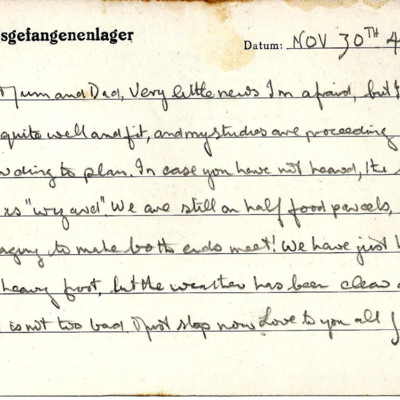 sgefangenenlager
Datum: NOV 30TH 4
Mum and Dad, Very little news I'm afraid, but
quite well and fit, and my studies are proceeding
to plan. In case you have not heard, the
"wizard". We are still on half food parcels,
to make both ends meet! We have just
heavy frost, but the weather has been clear
is not too bad. Must stop now Love to you all